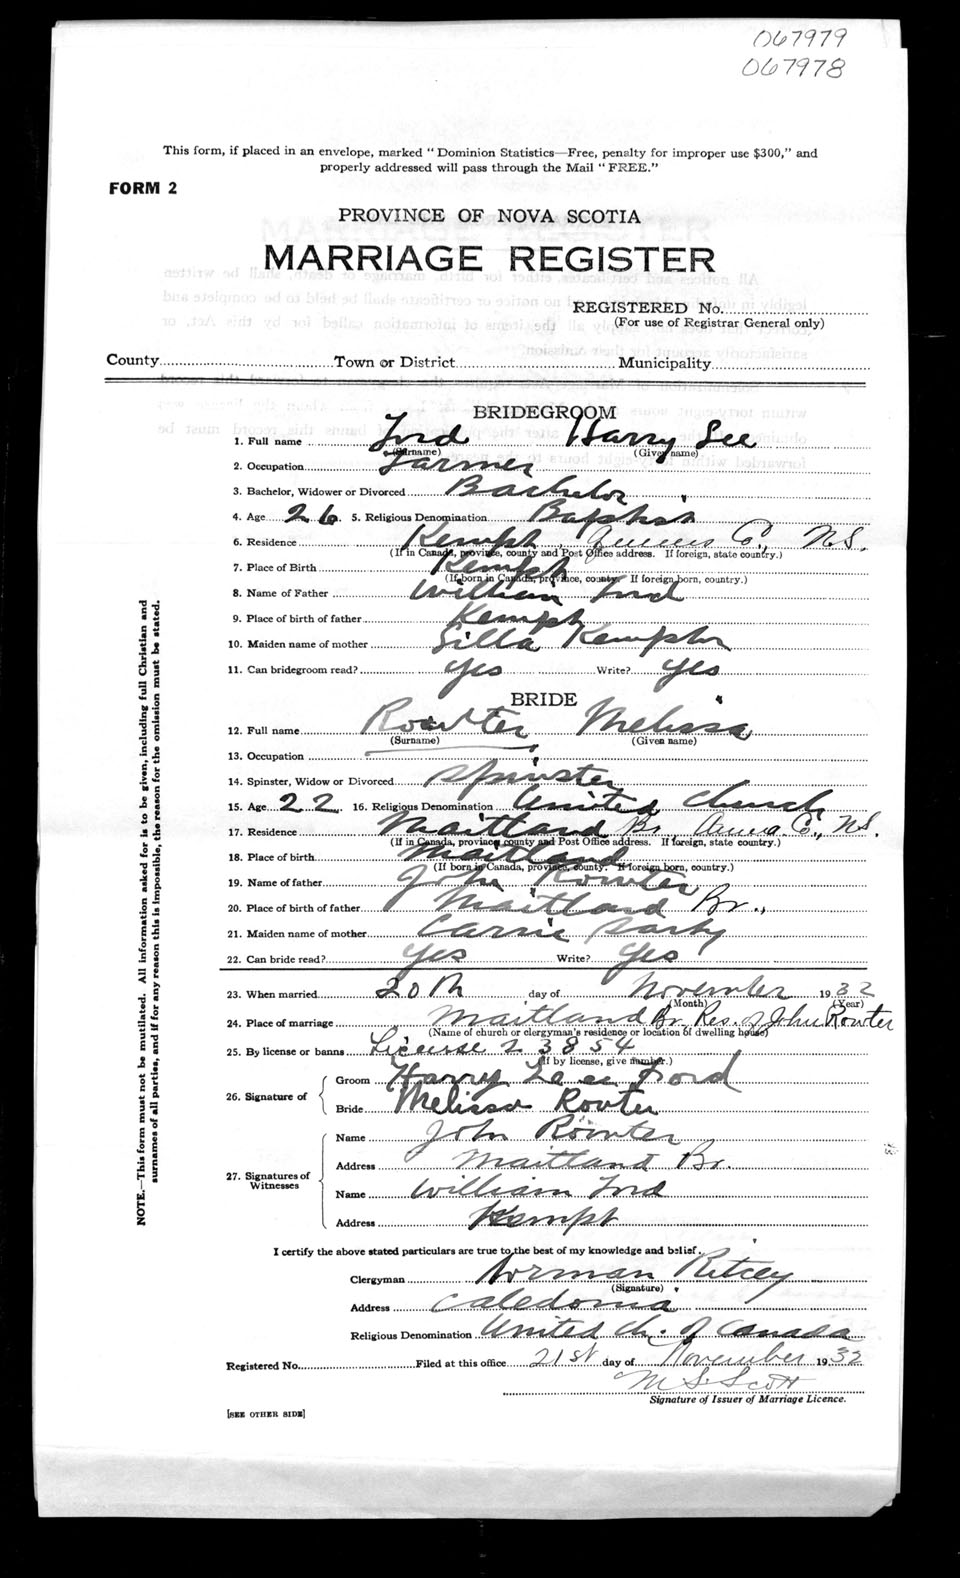 067979
067978
This form, if placed in an envelope, marked "Dominion Statistics—Free, penalty for improper use $300," and
properly addressed will pass through the Mail "FREE."
FORM 2
PROVINCE OF NOVA SCOTIA
MARRIAGE REGISTER
REGISTERED No.
(For use of Registrar General only)
County Town or District Municipality
BRIDEGROOM
1. Full name Ford Harry Lee
(Surname) (Given name)
2. Occupation Farmer
3. Bachelor, Widower or Divorced Bachelor
4. Age 26. 5. Religious Denomination Baptist
6. Residence Kempt, Queens Co., N.S.
(If in Canada, province, county and Post Office address. If foreign, state country.)
7. Place of Birth Kempt
(If born in Canada, province, county. If foreign born, country.)
8. Name of Father William Ford
9. Place of birth of father Kempt
10. Maiden name of mother Silla Kempton
11. Can bridegroom read? Yes Write? Yes
BRIDE
12. Full name Rowter Melissa
(Surname) (Given name)
13. Occupation
14. Spinster, Widow or Divorced Spinster
15. Age 22. 16. Religious Denomination United Church
17. Residence Maitland Br., Anna Co., N.S.
(If in Canada, province county and Post Office address. If foreign, state country.)
18. Place of birth Maitland
(If born in Canada, province, county. If foreign born, country.)
19. Name of father John Rowter
20. Place of birth of father Maitland Br.,
21. Maiden name of mother Carrie
22. Can bride read? Yes Write? Yes
23. When married 20th day of November 1932
(Month) (Year)
24. Place of marriage Maitland Br. Res. of John Rowter
(Name of church or clergyman's residence or location of dwelling house)
25. By license or banns License 23854
(If by license, give number.)
26. Signature of
Groom Harry Lee Ford
Bride Melissa Rowter
27. Signatures of Witnesses
Name John Rowter
Address Maitland Br.
Name William Ford
Address Kempt
I certify the above stated particulars are true to the best of my knowledge and belief.
Clergyman Norman Ritcey
(Signature)
Address Caledonia
Religious Denomination United Ch. of Canada
Registered No. Filed at this office 21st day of November 1932
M S. Scott
Signature of Issuer of Marriage Licence.
[SEE OTHER SIDE]
NOTE.—This form must not be mutilated. All information asked for is to be given, including full Christian and
surnames of all parties, and if for any reason this is impossible, the reason for the omission must be stated.